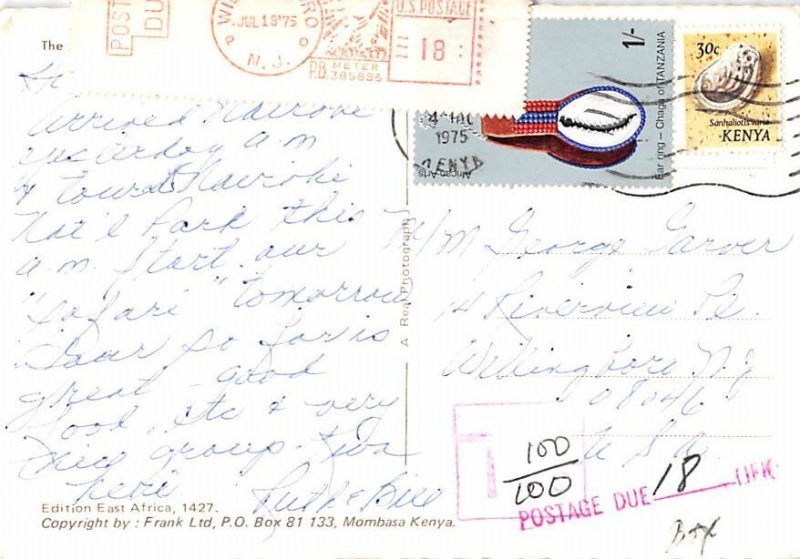 The
POSTA
DUE
WILL RO
JUL 18'75
N.J.
P.B.
METER
385886
U.S. POSTAGE
18
1/-
Ear ring - Chaga of TANZANIA
African Arts
1975
KENYA
30c
Sanhaliotis varia
KENYA
Hi
Arrived Nairobi
yesterday a.m
& toured Nairobi
Nat'l Park this
a.m. Start our
"safari" tomorrow
Tour so far is
great - good
food, etc & very
nice group.
here
Ruth & Bill
A Real Photograph
M/M George Garver
14 Riverview Pl.
Willingboro N.J
08046
U S A
T
100
100
POSTAGE DUE 18
Edition East Africa, 1427.
Copyright by : Frank Ltd, P.O. Box 81 133, Mombasa Kenya.